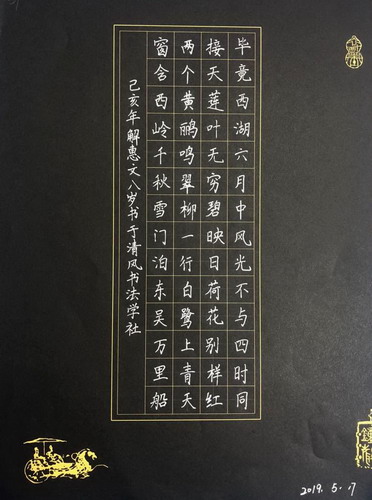 毕竟西湖六月中风光不与四时同
接天莲叶无穷碧映日荷花别样红
两个黄鹂鸣翠柳一行白鹭上青天
窗含西岭千秋雪门泊东吴万里船
己亥年解惠文八岁书于清风书法学社
2019.5.17